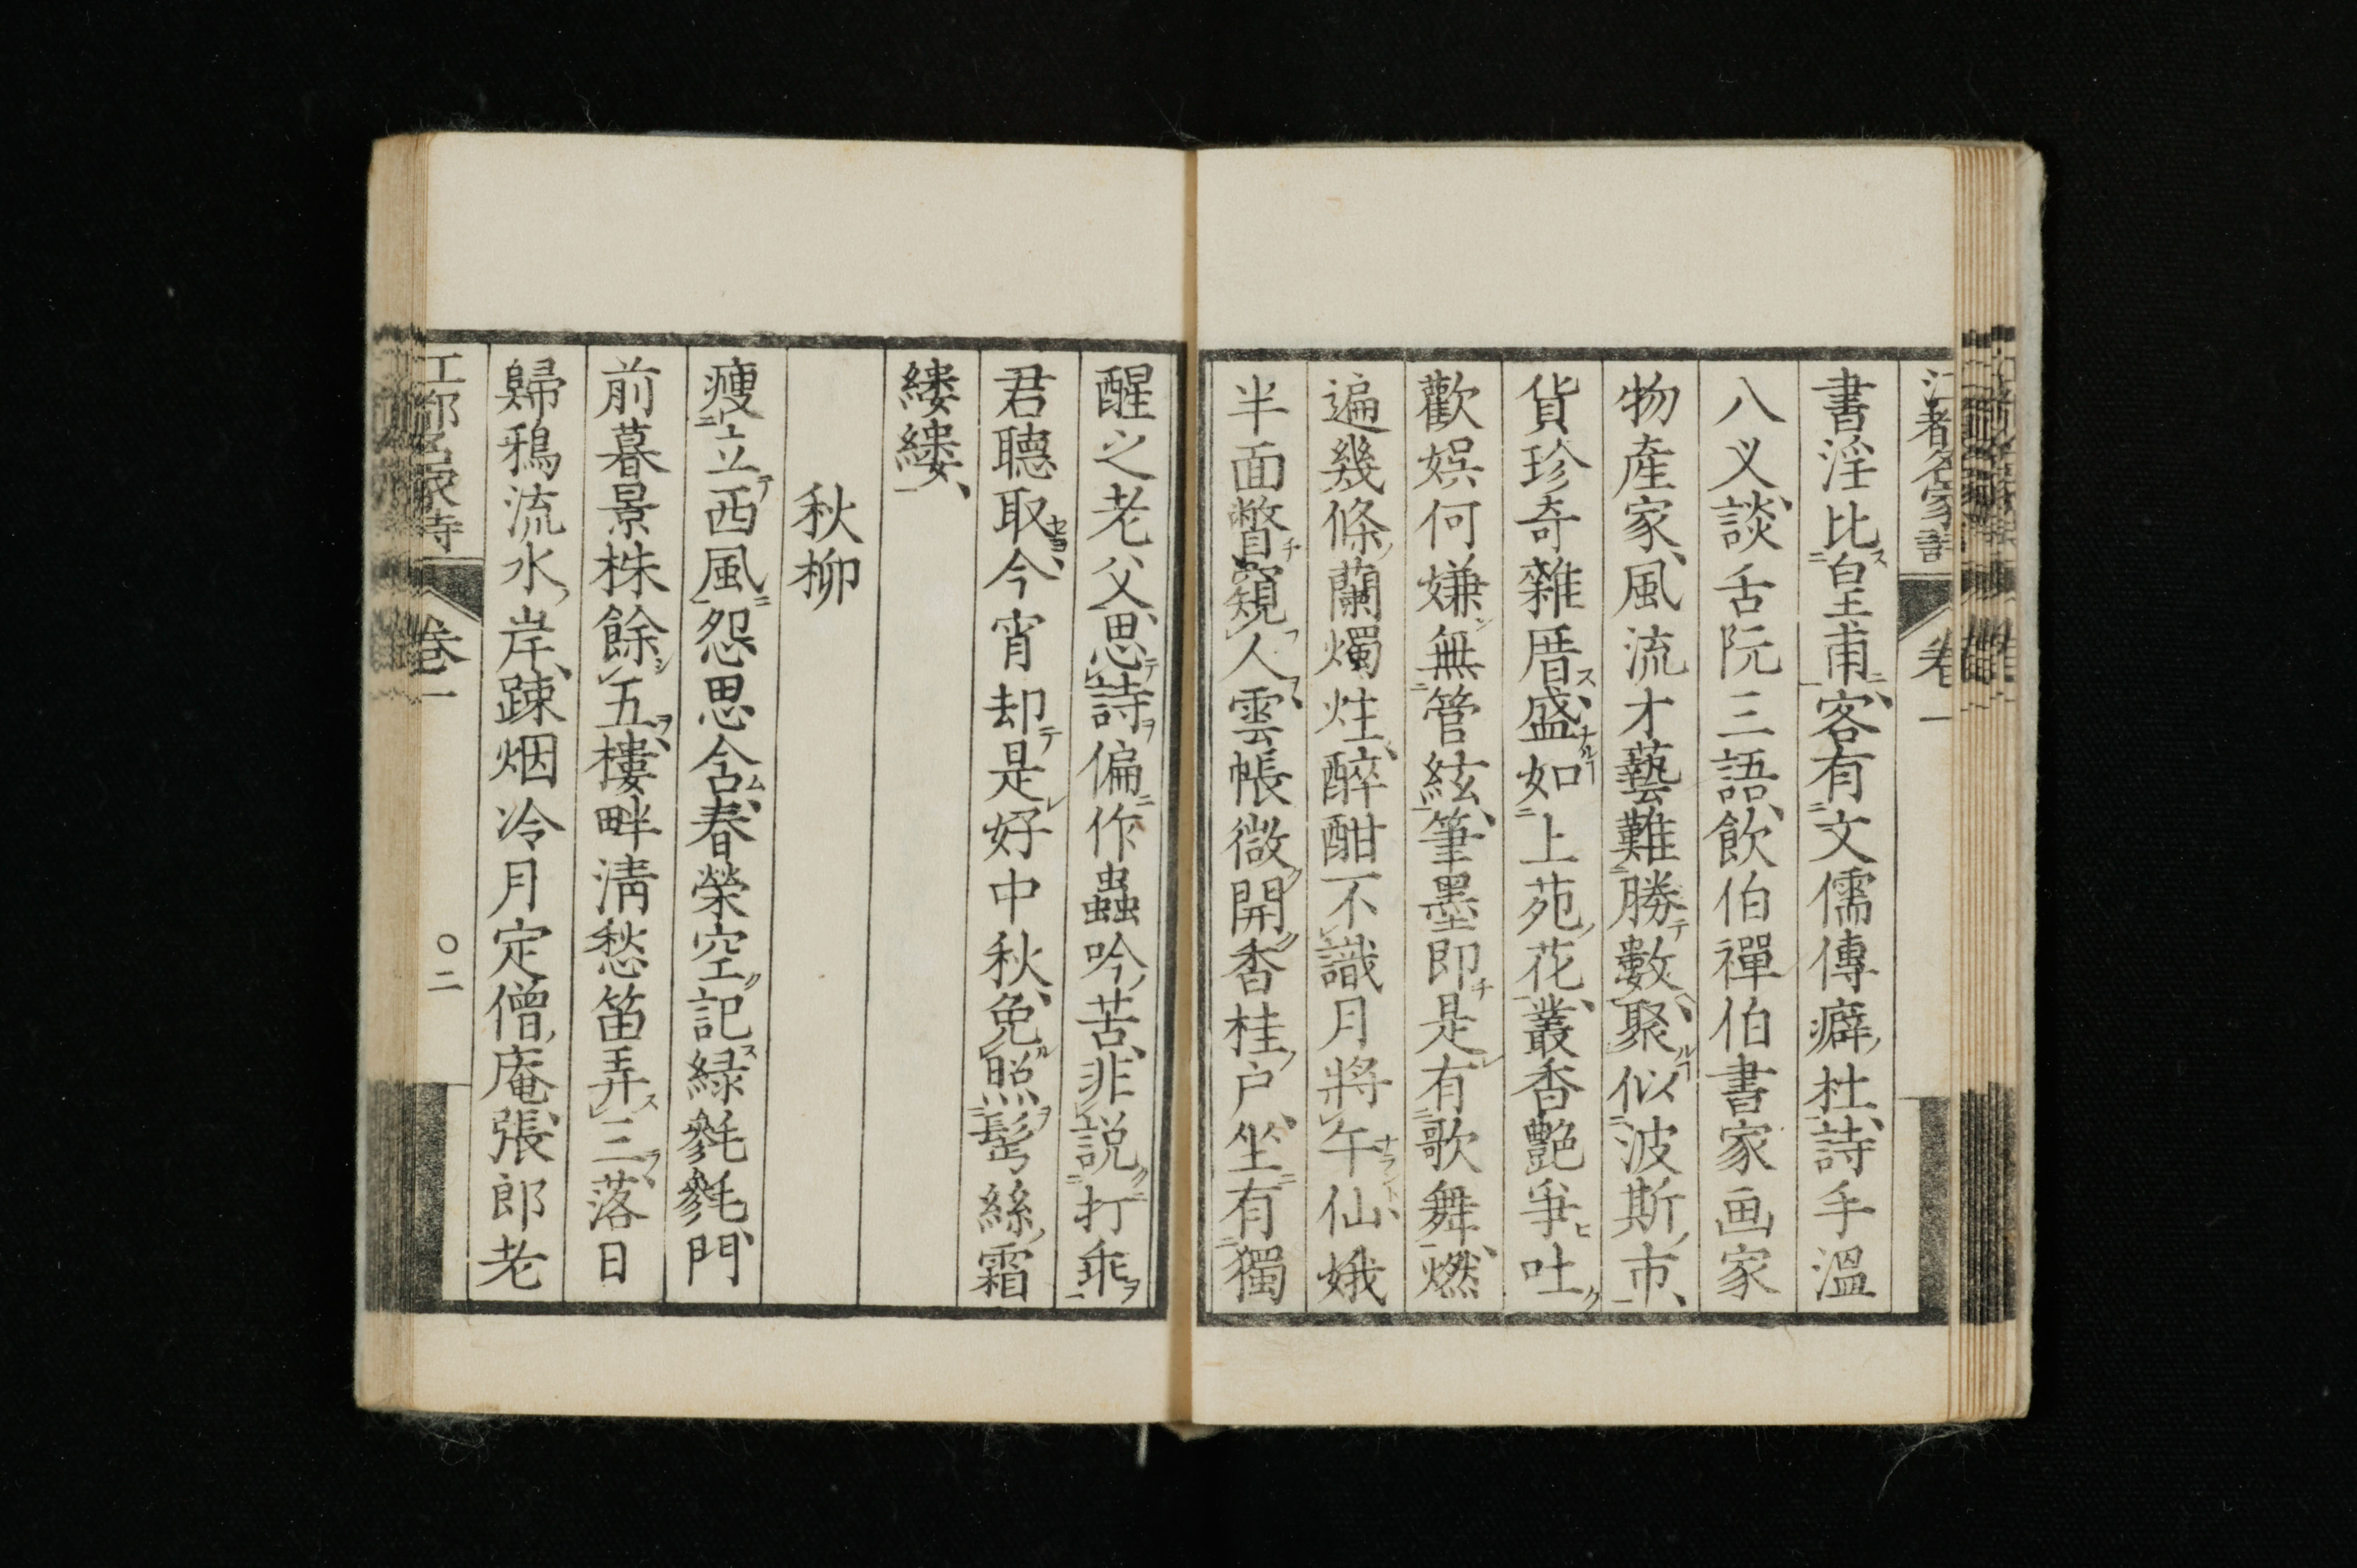 書淫比皇甫客有文儒傳癖杜詩手溫
八叉談舌阮三語飲伯禪伯書家画家
物產家風流才藝難勝數聚似波斯市
貨珍奇雜厝盛如上苑花叢香艷爭吐
歡娯何嫌無管絃筆墨即是有歌舞燃
遍幾條蘭燭炷醉酣不識月將午仙娥
半面瞥窺人雲帳微開香桂户坐有獨
醒之老父思詩偏作蟲吟苦非説打乖
君聽取今宵却是好中秋免照髩絲霜
縷縷
秋柳
瘦立西風怨思含春榮空記緑毿毿門
前暮景株餘五樓畔淸愁笛弄三落日
歸鴉流水岸踈烟冷月定僧庵張郎老
卷一
〇二